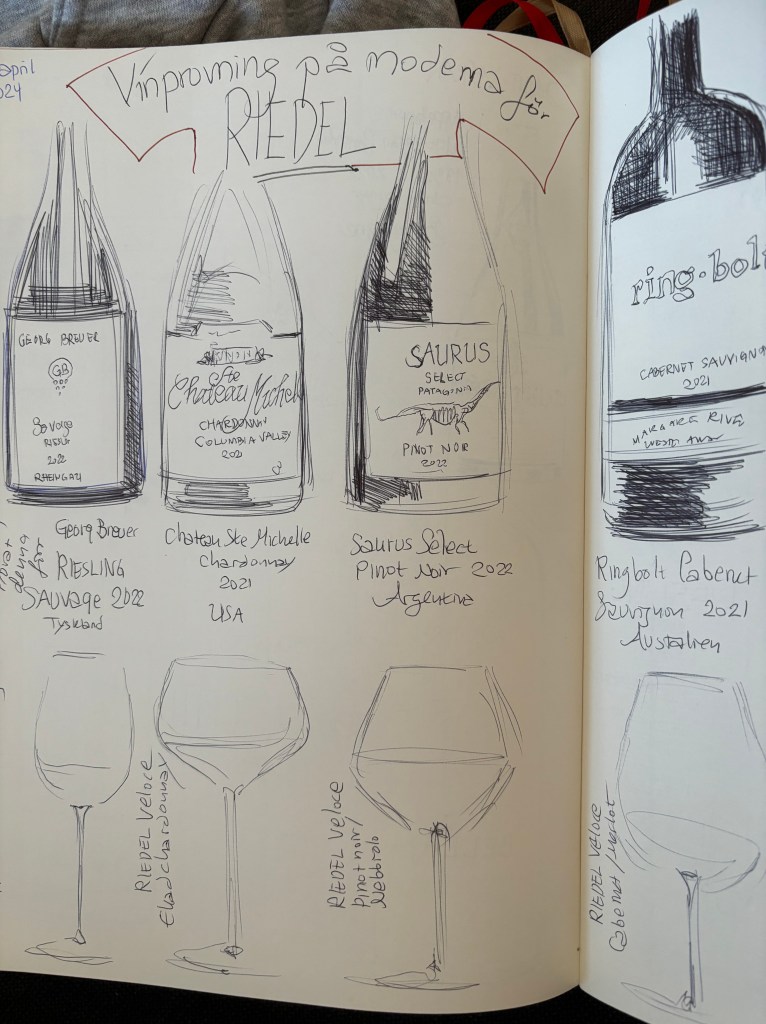 april
2024
Vinprovning på moderna för
RIEDEL
GEORG BREUER
GB
Sauvage
RIESLI
2022
RHEINGAU
Ste
Chateau Michel
CHARDONNAY
COLUMBIA VALLEY
2021
SAURUS
SELECT
PATAGONIA
PINOT NOIR
2022
ring·bol
CABERNET SAUVIGNON
2021
MARGARET RIVE
Georg Breuer
RIESLING
SAUVAGE 2022
Tyskland
Chateau Ste Michelle
Chardonnay
2021
USA
Saurus Select
Pinot Noir 2022
Argentina
Ringbolt Cabernet
Sauvignon 2021
Australien
denna
för
RIEDEL Veloce
Ekad chardonnay
RIEDEL Veloce
pinot noir/
Nebbiolo
RIEDEL VELOCE
Cabernet/Merlot